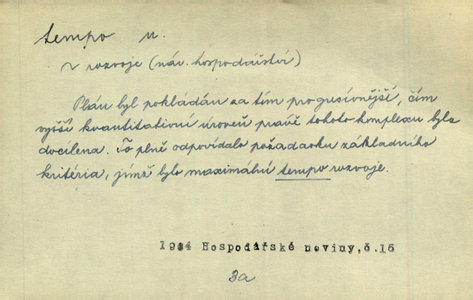 tempo n.
~ rozvoje (nár. hospodářství)
Plán byl pokládán za tím progresivnější, čím
vyšší kvantitativní úroveň právě tohoto komplexu byla
docílena. To plně odpovídalo požadavku základního
kritéria, jímž bylo maximální tempo rozvoje.
1964 Hospodářské noviny, č.15
3a